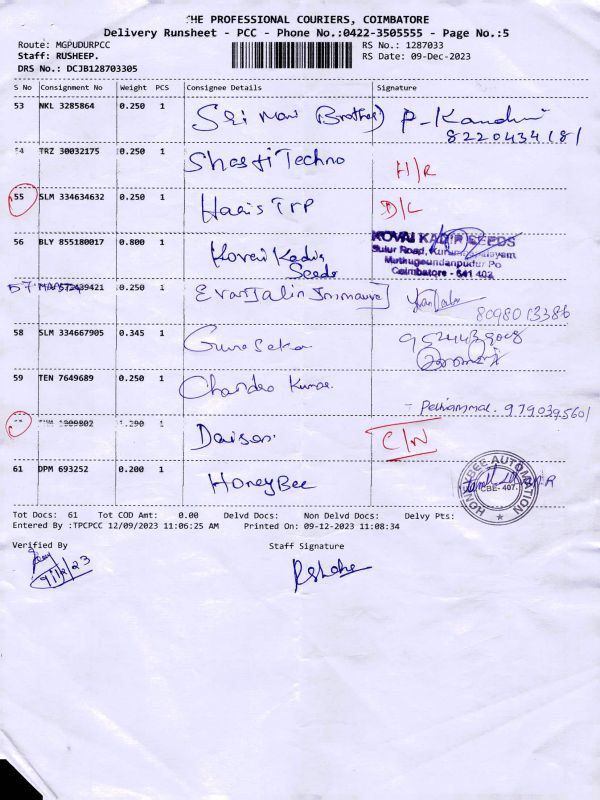 THE PROFESSIONAL COURIERS, COIMBATORE
Delivery Runsheet - PCC - Phone No.:0422-3505555 - Page No.:5
Route: MGPUDURPCC RS No.: 1287033
Staff: RUSHEEP. RS Date: 09-Dec-2023
DRS No.: DCJB128703305
S No Consignment No Weight PCS Consignee Details Signature
53 NKL 3285864 0.250 1 Sri Mari (Brother) P-Kandu
8220434181
54 TRZ 30032175 0.250 1 Shakti Techno H/R
55 SLM 334634632 0.250 1 Haris TRP D/L
56 BLY 855180017 0.800 1 Kovai Kadir Seeds KOVAI KADIR SEEDS
Sulur Road,
Muthugoundanpudur Po
Coimbatore - 641 402
57 0.250 1 8098013386
58 SLM 334667905 0.345 1 Guna Seka 9524439008
59 TEN 7649689 0.250 1 Chandra Kumar
- Pechiammal. 9790395601
1.290 1 Daison C/N
61 DPM 693252 0.200 1 HoneyBee HONEYBEE AUTOMATION CBE- 407.
Tot Docs: 61 Tot COD Amt: 0.00 Delvd Docs: Non Delvd Docs: Delvy Pts:
Entered By :TPCPCC 12/09/2023 11:06:25 AM Printed On: 09-12-2023 11:08:34
Verified By Staff Signature
9/12/23